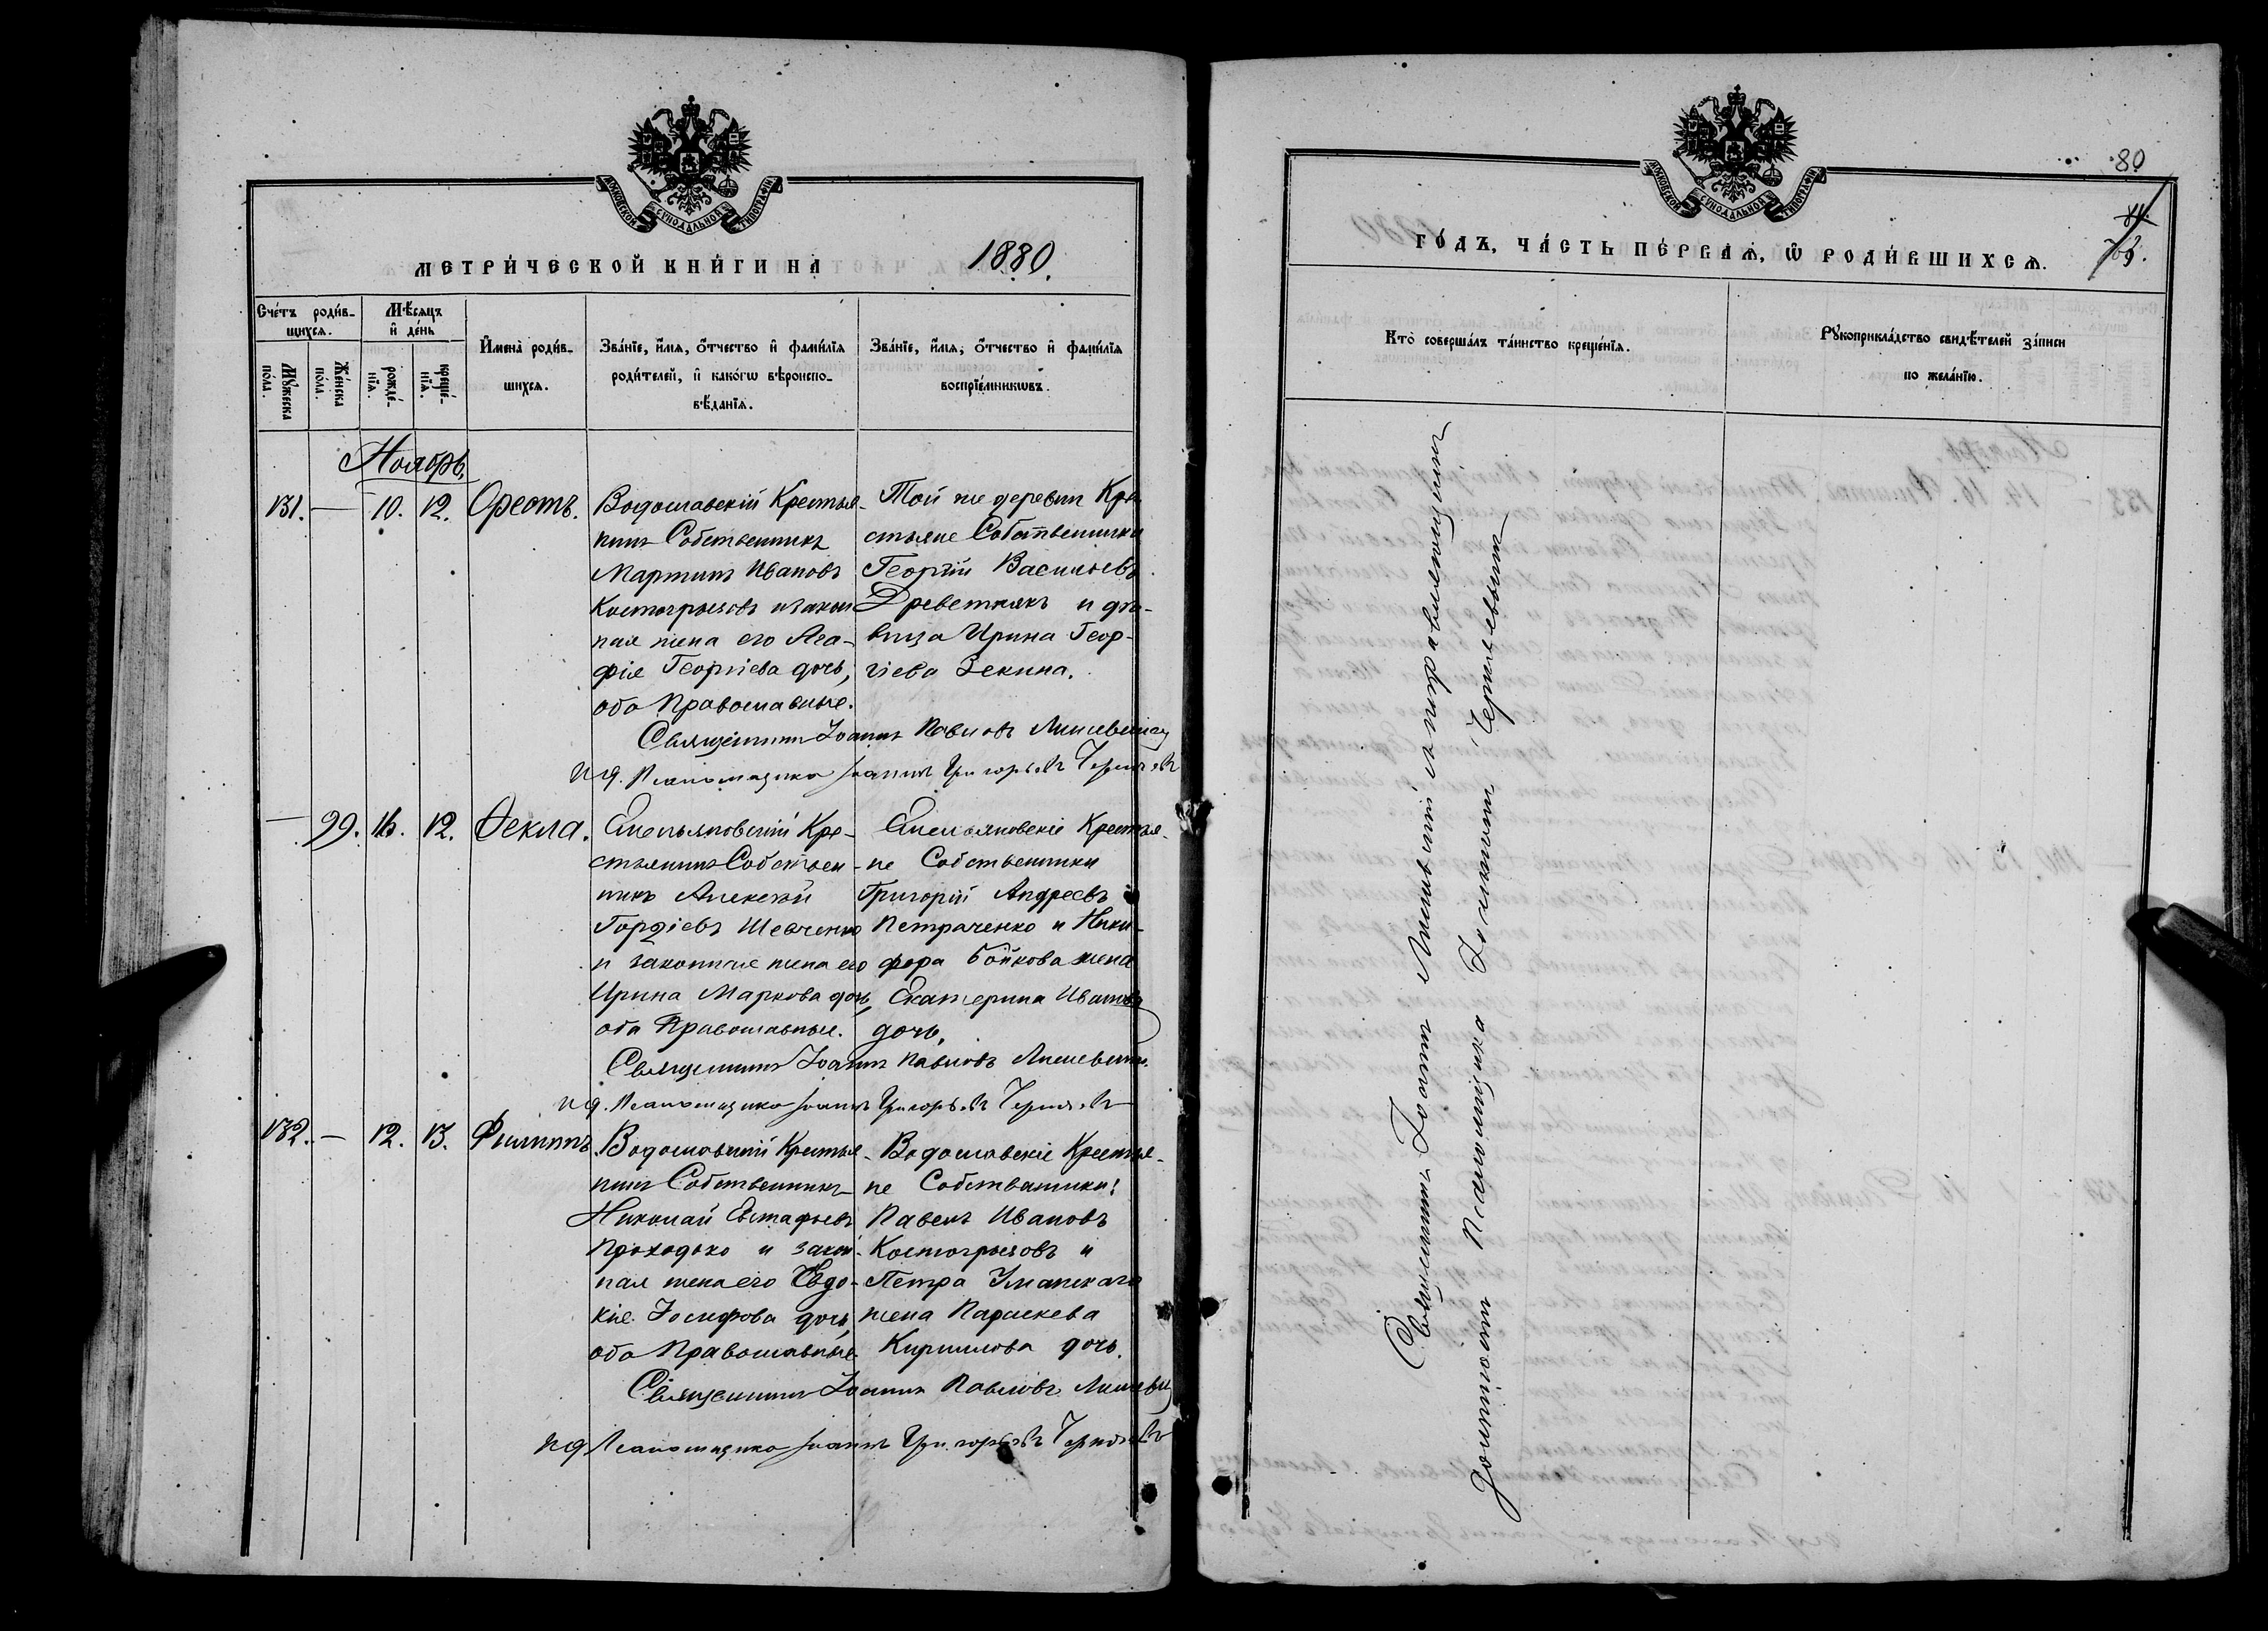 МОСКОВСКОЙ СУНОДАЛЬНОЙ ТИПОГРАФІИ
МЕТРИ́ЧЕСКОЙ КНИ́ГИ НА 1880.
Сче́тъ роди́в-
щихся.
Мѣ́сяцъ
и҆ де́нь
Мꙋ́жеска
по́ла.
Же́нска
по́ла.
рожде́-
нїѧ.
креще́-
нїѧ.
И҆мена̀ роди́в-
шихсѧ.
Зва́нїе, и҆́мѧ, о҆́тчество и҆ фамѝлїѧ
роди́телей, и҆ како́гѡ вѣроиспо-
вѣ́данїѧ.
Зва́нїе, и҆́мѧ, о҆́тчество и҆ фамѝлїѧ
воспрїе́мникѡвъ.
Ноябрь
131. — 10. 12. Орестъ.
Водославскій Крестья-
нинъ Собственникъ
Мартинъ Ивановъ
Костогрызовъ и закон
ная жена его Ага-
фія Георгіева дочь,
оба Православные.
Той же деревни Кре-
стьяне Собственники
Георгій Васильевъ
Древетнякъ и дѣ-
вица Ирина Геор-
гіева Зекина.
Священникъ Іоаннъ Павловъ
и д. Псаломщика Іоаннъ Григорьевъ
— 99. 12. Ѳекла.
Емельяновскій Кре-
стьянинъ Собствен-
никъ Алексѣй
Гордіевъ Шевченко
и законная жена его
Ирина Маркова дочь,
оба Православные.
Емельяновскіе Крестья-
не Собственники
Григорій Андреевъ
Петраченко и Ники-
фора Бойкова жена
Екатерина Иванова
дочь,
Священникъ Іоаннъ Павловъ
и д. Псаломщика Іоаннъ Григорьевъ
132. — 12. 13. Филиппъ.
Водославскій Крестья-
нинъ Собственникъ
Николай Евстафьевъ
Проходько и закон-
ная жена его Евдо-
кія Іосифова дочь,
оба Православные
Водославскіе Крестья-
не Собственники:
Павелъ Ивановъ
Костогрызовъ и
Петра Уманскаго
жена Параскева
Кириллова дочь.
Священникъ Іоаннъ Павловъ
и д Псаломщика Іоаннъ Григорьевъ
МОСКОВСКОЙ СУНОДАЛЬНОЙ ТИПОГРАФІИ
80
ГО́ДЪ, ЧА́СТЬ ПЕ́РВАѦ, Ѡ҆ РОДИ́ВШИХСѦ.
Кто̀ соверша́лъ та́инство креще́нїѧ.
Рꙋкоприкла́дство свидѣ́телей за́писи
по жела́нїю.
Священникъ Іоаннъ
Псаломщика